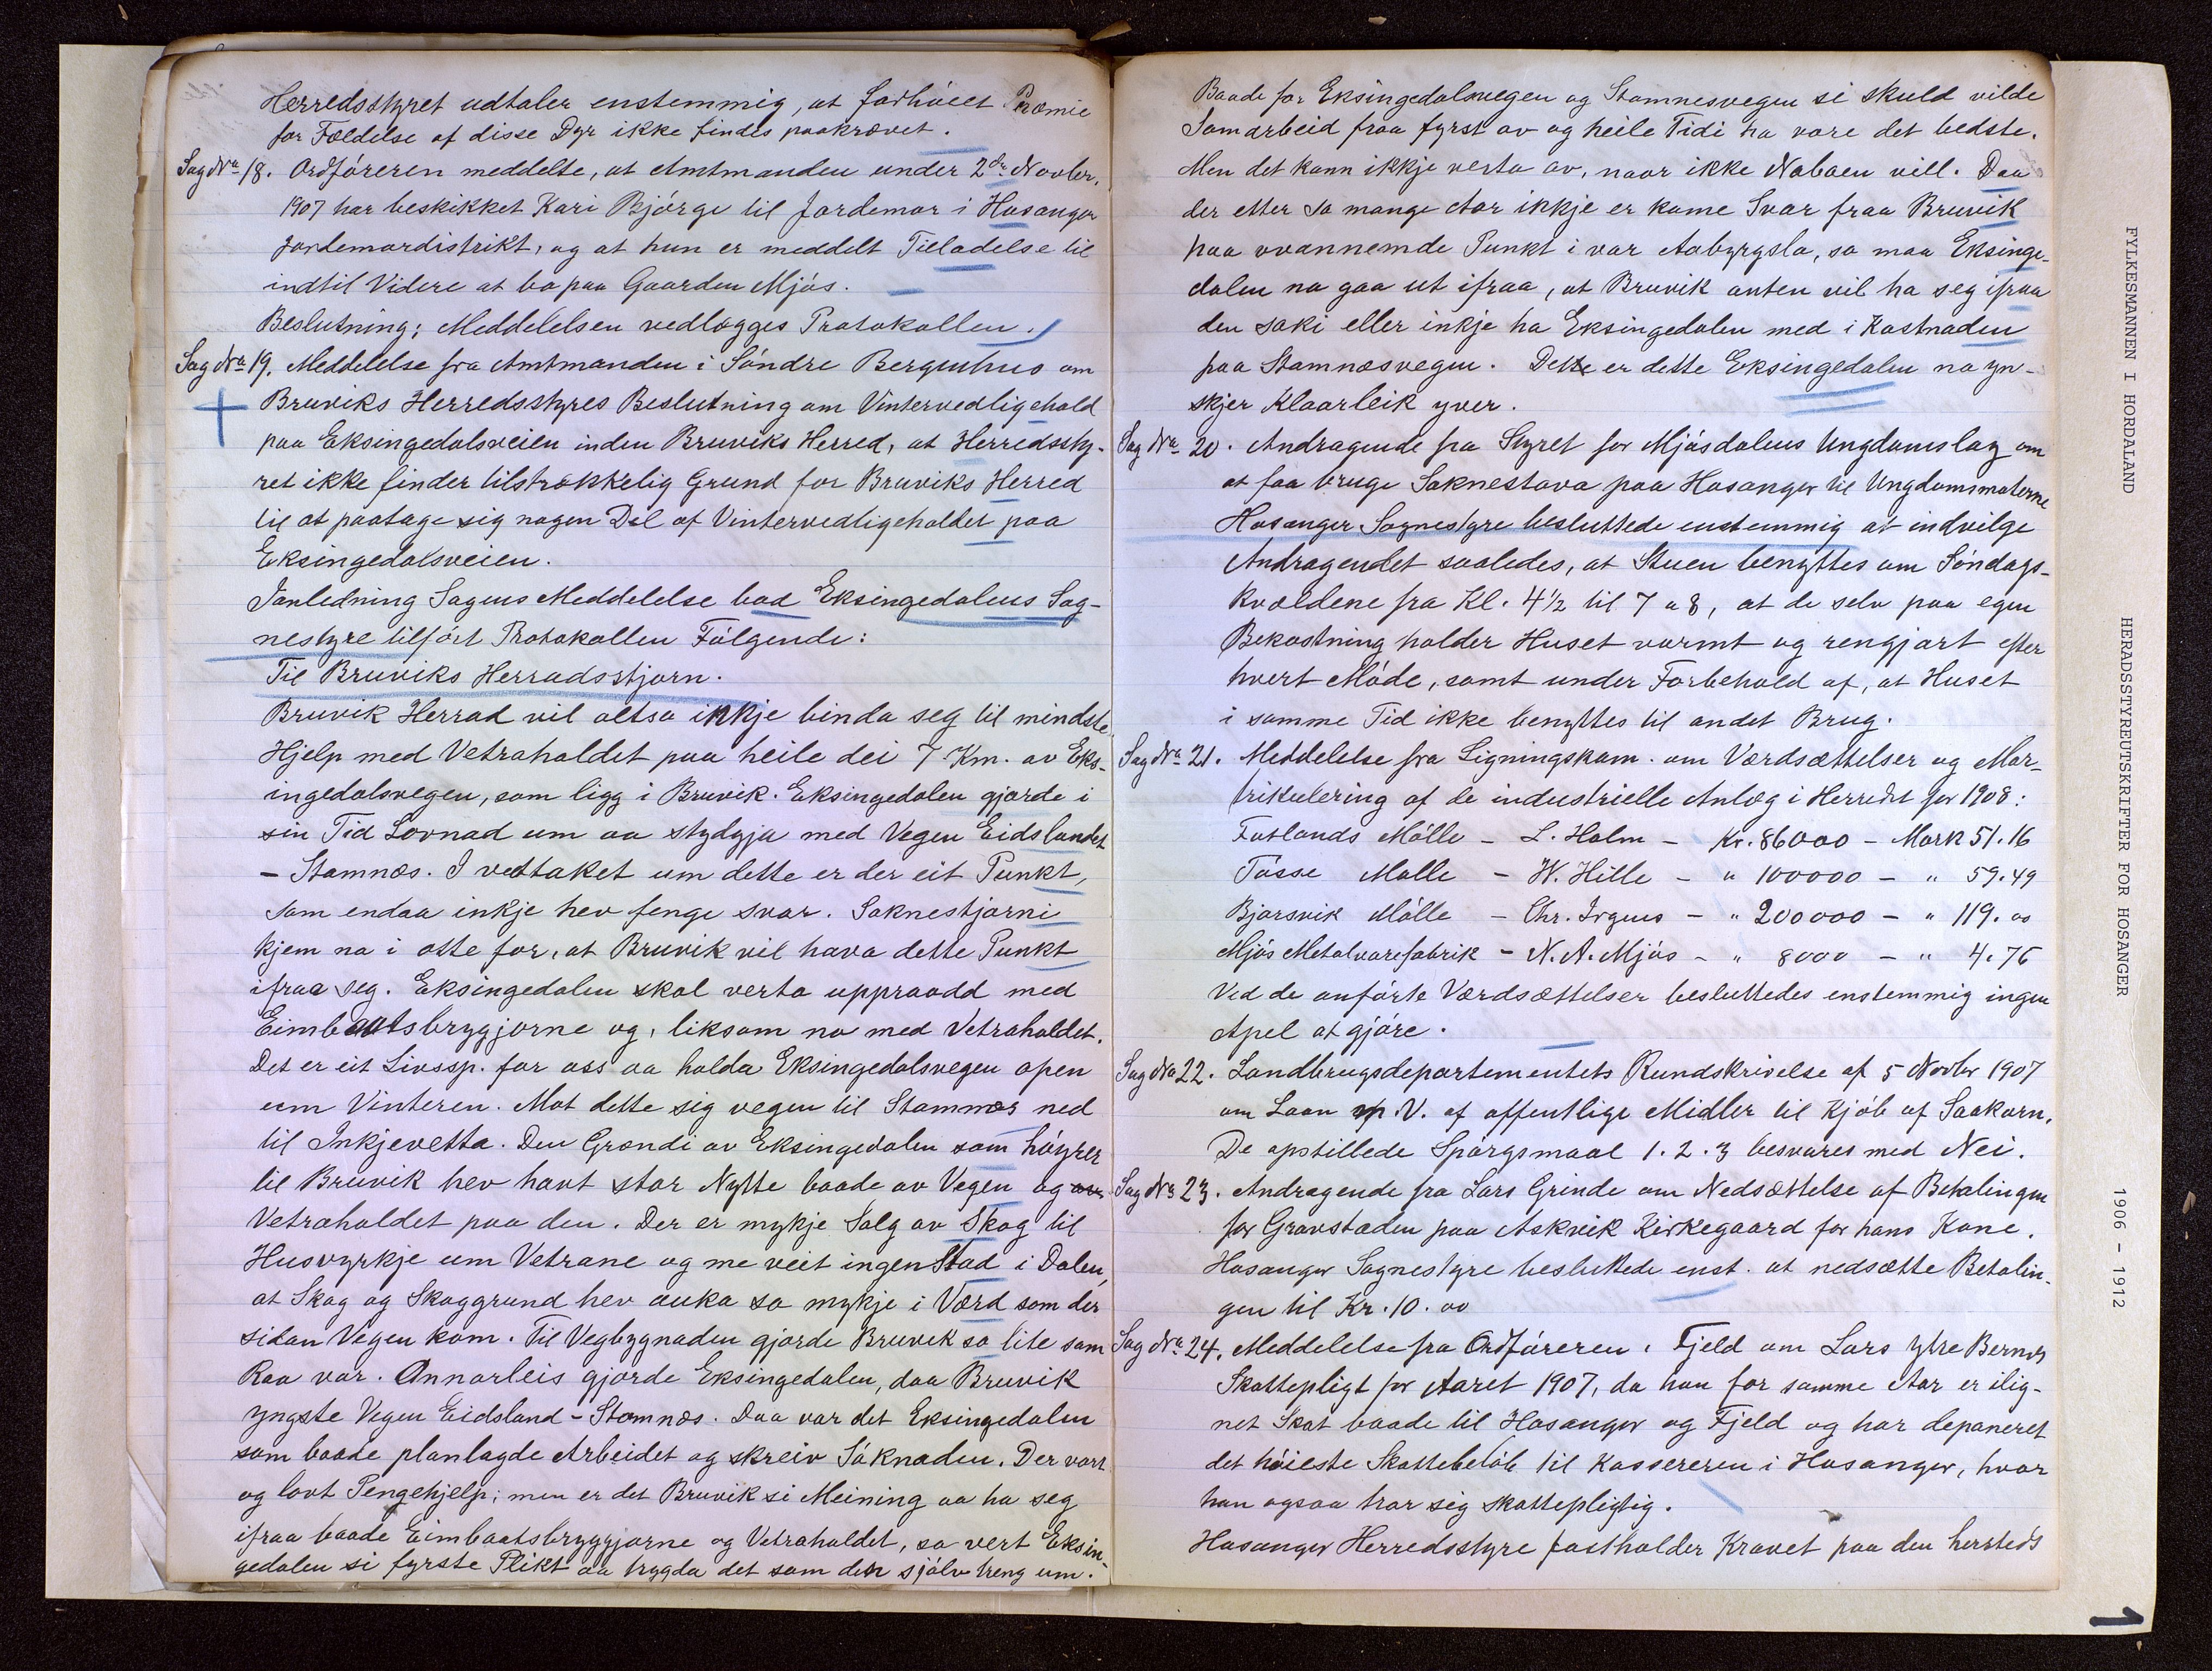 Herredsstyret udtaler enstemmig, at forhöiet Præmie
for Fældelse af disse Dyr ikke findes paakrævet.
Sag No 18. Ordföreren meddelte, at Amtmanden under 2den Novbr.
1907 har beskikket Kari Bjórge til Jordemor i Hosanger
Jordemordistrikt, og at hun er meddelt Tilladelse til
indtil Videre at bo paa Gaarden Mjós.
Beslutning: Meddelelsen vedlægges Protokollen.
Sag No 19. Meddelelse fra Amtmanden i Sóndre Bergenhus om
Bruviks Herredsstyres Beslutning om Vintervedligehold
paa Eksingedalsveien inden Bruviks Herred, at Herredssty-
ret ikke finder tilstrækkelig Grund for Bruviks Herred
til at paatage sig nogen Del af Vintervedligeholdet paa
Eksingedalsveien.
I anledning Sagens Meddelelse bad Eksingedalens Sog-
nestyre tilfört Protokollen Fölgende:
Til Bruviks Herradsstjorn.
Bruvik Herrad vil altso ikkje binda seg til mindste
Hjelp med Vetrahaldet paa heile dei 7 Km. av Eks-
ingedalsvegen, som ligg i Bruvik. Eksingedalen gjorde i
sin Tid Lovnad um aa stydgja med Vegen Eidslandet
- Stamnes. I vedtaket um dette er der eit Punkt,
som endaa inkje hev fenge svar. Soknestjorni
kjem no i otte for, at Bruvik vil hava dette Punkt
ifraa seg. Eksingedalen skal verta uppraadd med
Eimbaatsbryggjorne og, liksom no med Vetrahaldet.
Det er eit Livssp. for oss aa halda Eksingedalsvegen open
um Vinteren. Mot dette sig vegen til Stamnes ned
til Inkjevetta. Den Grendi av Eksingedalen som höyrer
til Bruvik hev havt stor Nytte baade av Vegen og
Vetrahaldet paa den. Der er mykje Salg av Skog til
Husvyrkje um Vetrane og me veit ingen Stad i Dalen,
at Skog og Skoggrund hev auka so mykje i Værd som der
sidan Vegen kom. Til Vegbygnaden gjorde Bruvik so lite som
Raa var. Annarleis gjorde Eksingedalen, daa Bruvik
yngste Vegen Eidsland - Stamnes. Daa var det Eksingedalen
som baade planlagde Arbeidet og skreiv Söknaden. Der vart
og lovt Pengehjelp; men er det Bruvik si Meining aa ha seg
ifraa baade Eimbaatsbryggjorne og Vetrahaldet, so vert Eksin-
gedalen si fyrste Plikt aa trygda det som den sjölv treng um.
Baade for Eksingedalsvegen og Stamnesvegen si skuld vilde
Samarbeid fraa fyrst av og heile Tidi ha vore det bedste.
Men det kann ikkje verta av, naar ikke Naboen vill. Daa
der etter so mange Aar ikkje er kome Svar fraa Bruvik
paa ovannemde Punkt i vor Aabyrgsla, so maa Eksinge-
dalen no gaa ut ifraa, at Bruvik anten vil ha seg ifraa
den saki eller inkje ha Eksingedalen med i Kostnaden
paa Stamnesvegen. Dette er dette Eksingedalen no yn-
skjer Klaarleik yver.
Sag No 20. Andragende fra Styret for Mjósdalens Ungdomslag om
at faa bruge Soknestova paa Hosanger til Ungdomsmøterne
Hosanger Sognestyre besluttede enstemmig at indvilge
Andragendet saaledes, at Stuen benyttes om Söndags-
kvældene fra Kl. 4 1/2 til 7 a 8, at de selv paa egen
Bekostning holder Huset varmt og rengjort efter
hvert Möde, samt under Forbehold af, at Huset
i samme Tid ikke benyttes til andet Brug.
Sag No 21. Meddelelse fra Ligningskom. om Værdsættelser og Mat-
trikulering af de industrielle Anlæg i Herredet for 1908:
Fotlands Mölle - L. Holm - Kr. 86000 - Mark 51.16
Tösse Mölle - W. Hille - " 100000 - " 59.49
Bjorsvik Mölle - Chr. Irgens - " 200000 - " 119.00
Mjós Metalvarefabrik - N. A. Mjós - " 8000 - " 4.76
Ved de anförte Værdsættelser besluttedes enstemmig ingen
Apel at gjöre.
Sag No 22. Landbrugsdepartementets Rundskrivelse af 5 Novbr 1907
om Laan p. V. af offentlige Midler til Kjöb af Saakorn.
De opstillede Spörgsmaal 1. 2. 3 besvares med Nei.
Sag No 23. Andragende fra Lars Grinde om Nedsættelse af Betalingen
for Gravstaden paa Askvik Kirkegaard for hans Kone.
Hosanger Sognestyre besluttede enst. at nedsætte Betalin-
gen til Kr. 10.00
Sag No 24. Meddelelse fra Ordföreren i Fjeld om Lars Ytre Bernes
Skattepligt for Aaret 1907, da han for samme Aar er ilig-
net Skat baade til Hosanger og Fjeld og har deponeret
det höieste Skattebelöb til Kassereren i Hosanger, hvor
han ogsaa tror sig skattepligtig.
Hosanger Herredsstyre fastholder Kravet paa den hersteds
FYLKESMANNEN I HORDALAND
HERADSSTYREUTSKRIFTER FOR HOSANGER
1906 - 1912
1